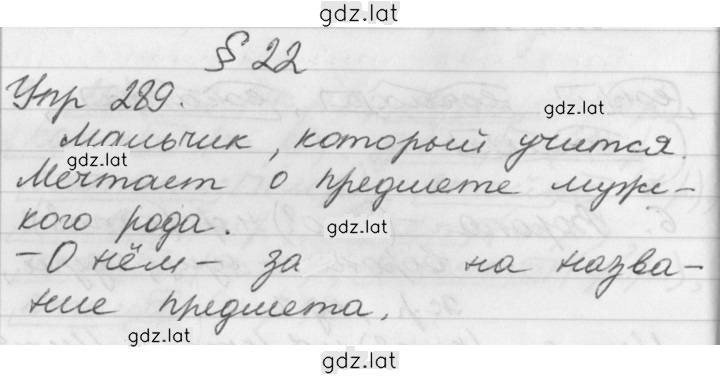 gdz.lat
§ 22
Упр 289.
gdz.lat
мальчик, который учится.
gdz.lat
Мечтает о предмете муж-
кого рода.
gdz.lat
- О нём - за на назва-
ние предмета.
gdz.lat
gdz.lat